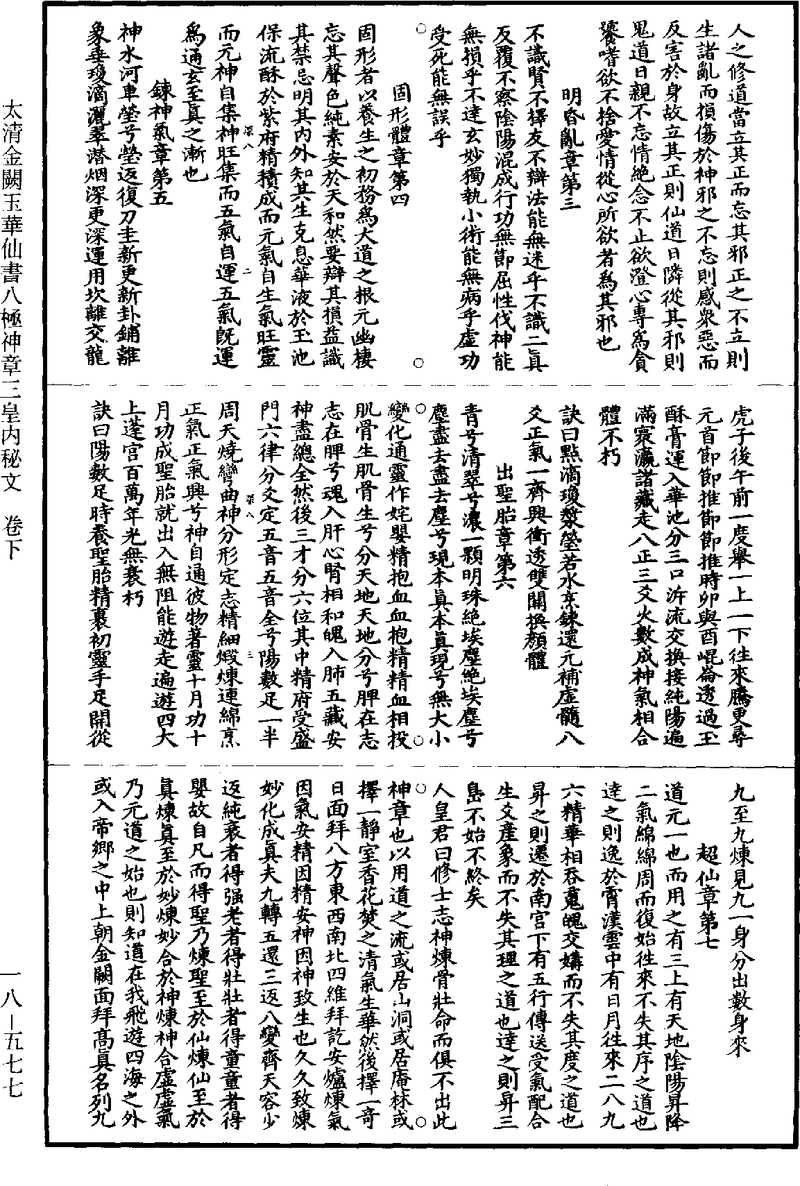 人之修道當立其正而忘其邪正之不立則
生諸亂而損傷於神邪之不忘則感衆惡而
反害於身故立其正則仙道日隣從其邪則
鬼道日親不忘情絕念不止欲澄心專為貪
饕嗜欲不捨愛情從心所欲者為其邪也
明昏亂章第三
不識賢不擇友不辯法能無迷乎不識二真
反覆不察陰陽混成行功無節屈性伐神能
無損乎不達玄妙獨執小術能無病乎虛功
受死能無誤乎
固形體章第四
固形者以養生之初務為大道之根元幽棲
忘其聲色純素安於天和然要辯其損益識
其禁忌明其內外知其生克息華液於玉池
保流酥於紫府精積成而元氣自生氣旺靈
而元神自集神旺集而五氣自運五氣既運
深八
二
為通玄至真之漸也
鍊神氣章第五
神水河車瑩兮瑩返復刀圭新更新卦鋪離
象垂瓊滴灑翠潛烟深更深運用坎離交龍
虎子後午前一度舉一上一下往來騰更尋
元首節節推節節推時卯與酉崐崙透過玉
酥膏運入華池分三口泝流交換接純陽遍
滿寰瀛諸藏走八正三爻火數成神氣相合
體不朽
訣曰點滴瓊漿瑩若水烹鍊還元補虛髓八
爻正氣一齊興衝透雙關換顏體
出聖胎章第六
青兮清翠兮濃一顆明珠絕埃塵絕埃塵兮
塵盡去盡去塵兮現本真本真現兮無大小
變化通靈作姹嬰精抱血血抱精精血相投
肌骨生肌骨生兮分天地天地分兮脾在志
志在脾兮魂入肝心腎相和魄入肺五藏安
神盡總全然後三才分六位其中精府受盛
門六律分爻定五音五音全兮陽數足一半
深八
三
周天燒彎曲神分形定志精細煅煉連綿烹
正氣正氣興兮神自通彼物著靈十月功十
月功成聖胎就出入無阻能遊走遍遊四大
上蓬宮百萬年光無衰朽
訣曰陽數足時養聖胎精裹初靈手足開從
九至九煉見九一身分出數身來
超仙章第七
道元一也而用之有三上有天地陰陽昇降
二氣綿綿周而復始往來不失其序之道也
達之則逸於霄漢雲中有日月往來二八九
六精華相吞䰟魄交媾而不失其度之道也
昇之則遷於南宮下有五行傳送受氣配合
生爻產象而不失其理之道也達之則昇三
島不始不終矣
人皇君曰修士志神煉骨壯命而俱不出此
神章也以用道之流或居山洞或居庵林或
擇一靜室香花焚之清氣生華然後擇一奇
日面拜八方東西南北四維拜訖安爐煉氣
因氣安精因精安神因神致生也久久致煉
妙化成真夫九轉五還三返八變齊天容少
返純衰者得强老者得壯壯者得童童者得
嬰故自凡而得聖乃煉聖至於仙煉仙至於
真煉真至於妙煉妙合於神煉神合虛虛氣
乃元道之始也則知道在我飛遊四海之外
或入帝鄉之中上朝金闕面拜高真名列九
太清金闕玉華仙書八極神章三皇內秘文　卷下
一八—五七七